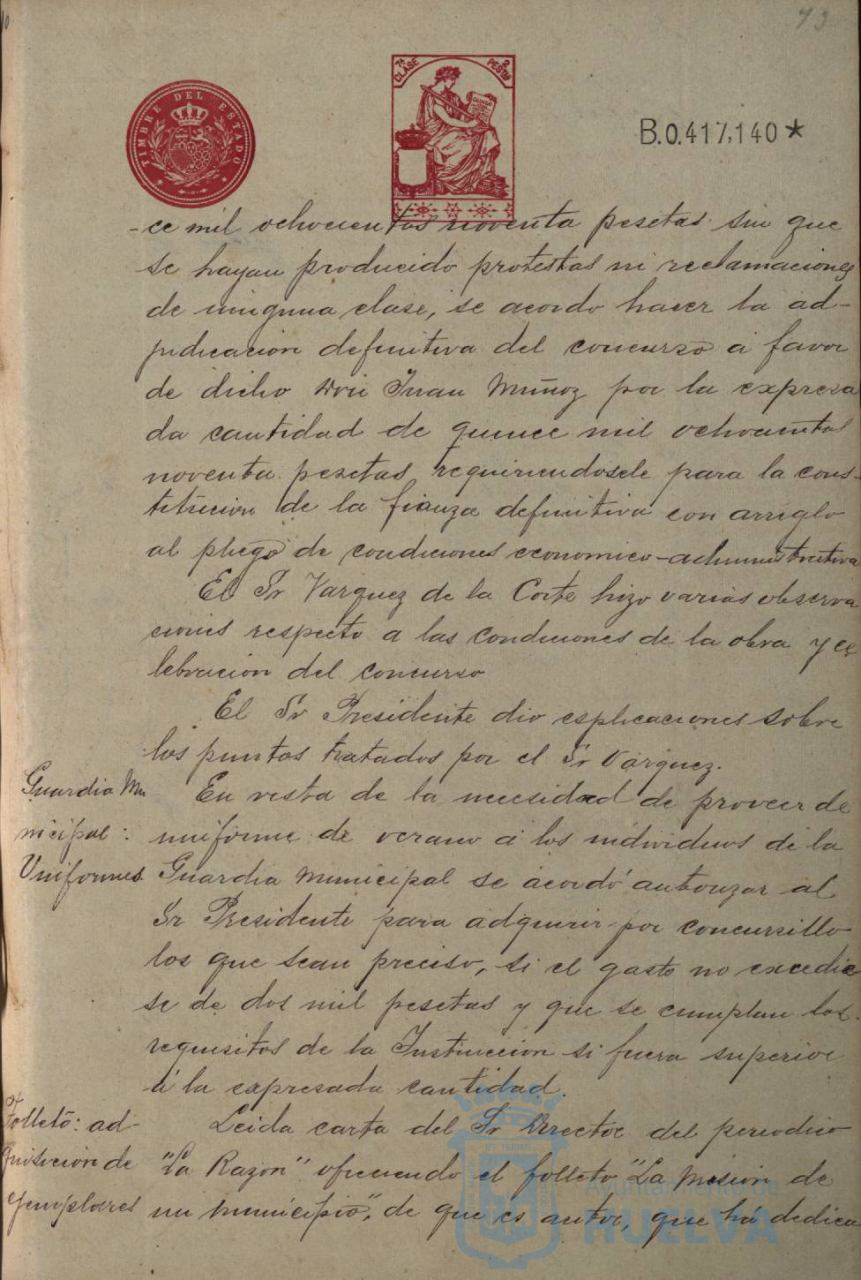 73
TIMBRE DEL ESTADO
7ª CLASE 2 PESTAS
B.0.417,140*
-ce mil ochocientas noventa pesetas sin que
se hayan producido protestas ni reclamaciones
de ninguna clase, se acordo hacer la ad-
judicación definitiva del concurso a favor
de dicho Don Juan Muñoz por la expresa
da cantidad de quince mil ochocientas
noventa pesetas requiriendosele para la cons-
titucion de la fianza definitiva con arreglo
al pliego de condiciones economico-administrativa
El Sr Vazquez de la Corte hizo varias observa
ciones respecto a las condiciones de la obra y ce
lebracion del concurso
El Sr Presidente dio esplicaciones sobre
los puntos tratados por el Sr Vazquez.
Guardia Mu
nicipal:
Uniformes
En vista de la necesidad de proveer de
uniforme de verano á los individuos de la
Guardia Municipal se acordó autorizar al
Sr Presidente para adquirir por concursillo
los que sean preciso, si el gasto no excedie
se de dos mil pesetas y que se cumplan los
requisitos de la Instrucción si fuera superior
á la expresada cantidad.
Folleto: ad-
quisición de
ejemplares
Leida carta del Sr Director del periodico
"La Razón" ofreciendo el folleto "La Misión de
un Municipio", de que es autor, que ha dedica
Ayuntamiento de
HUELVA